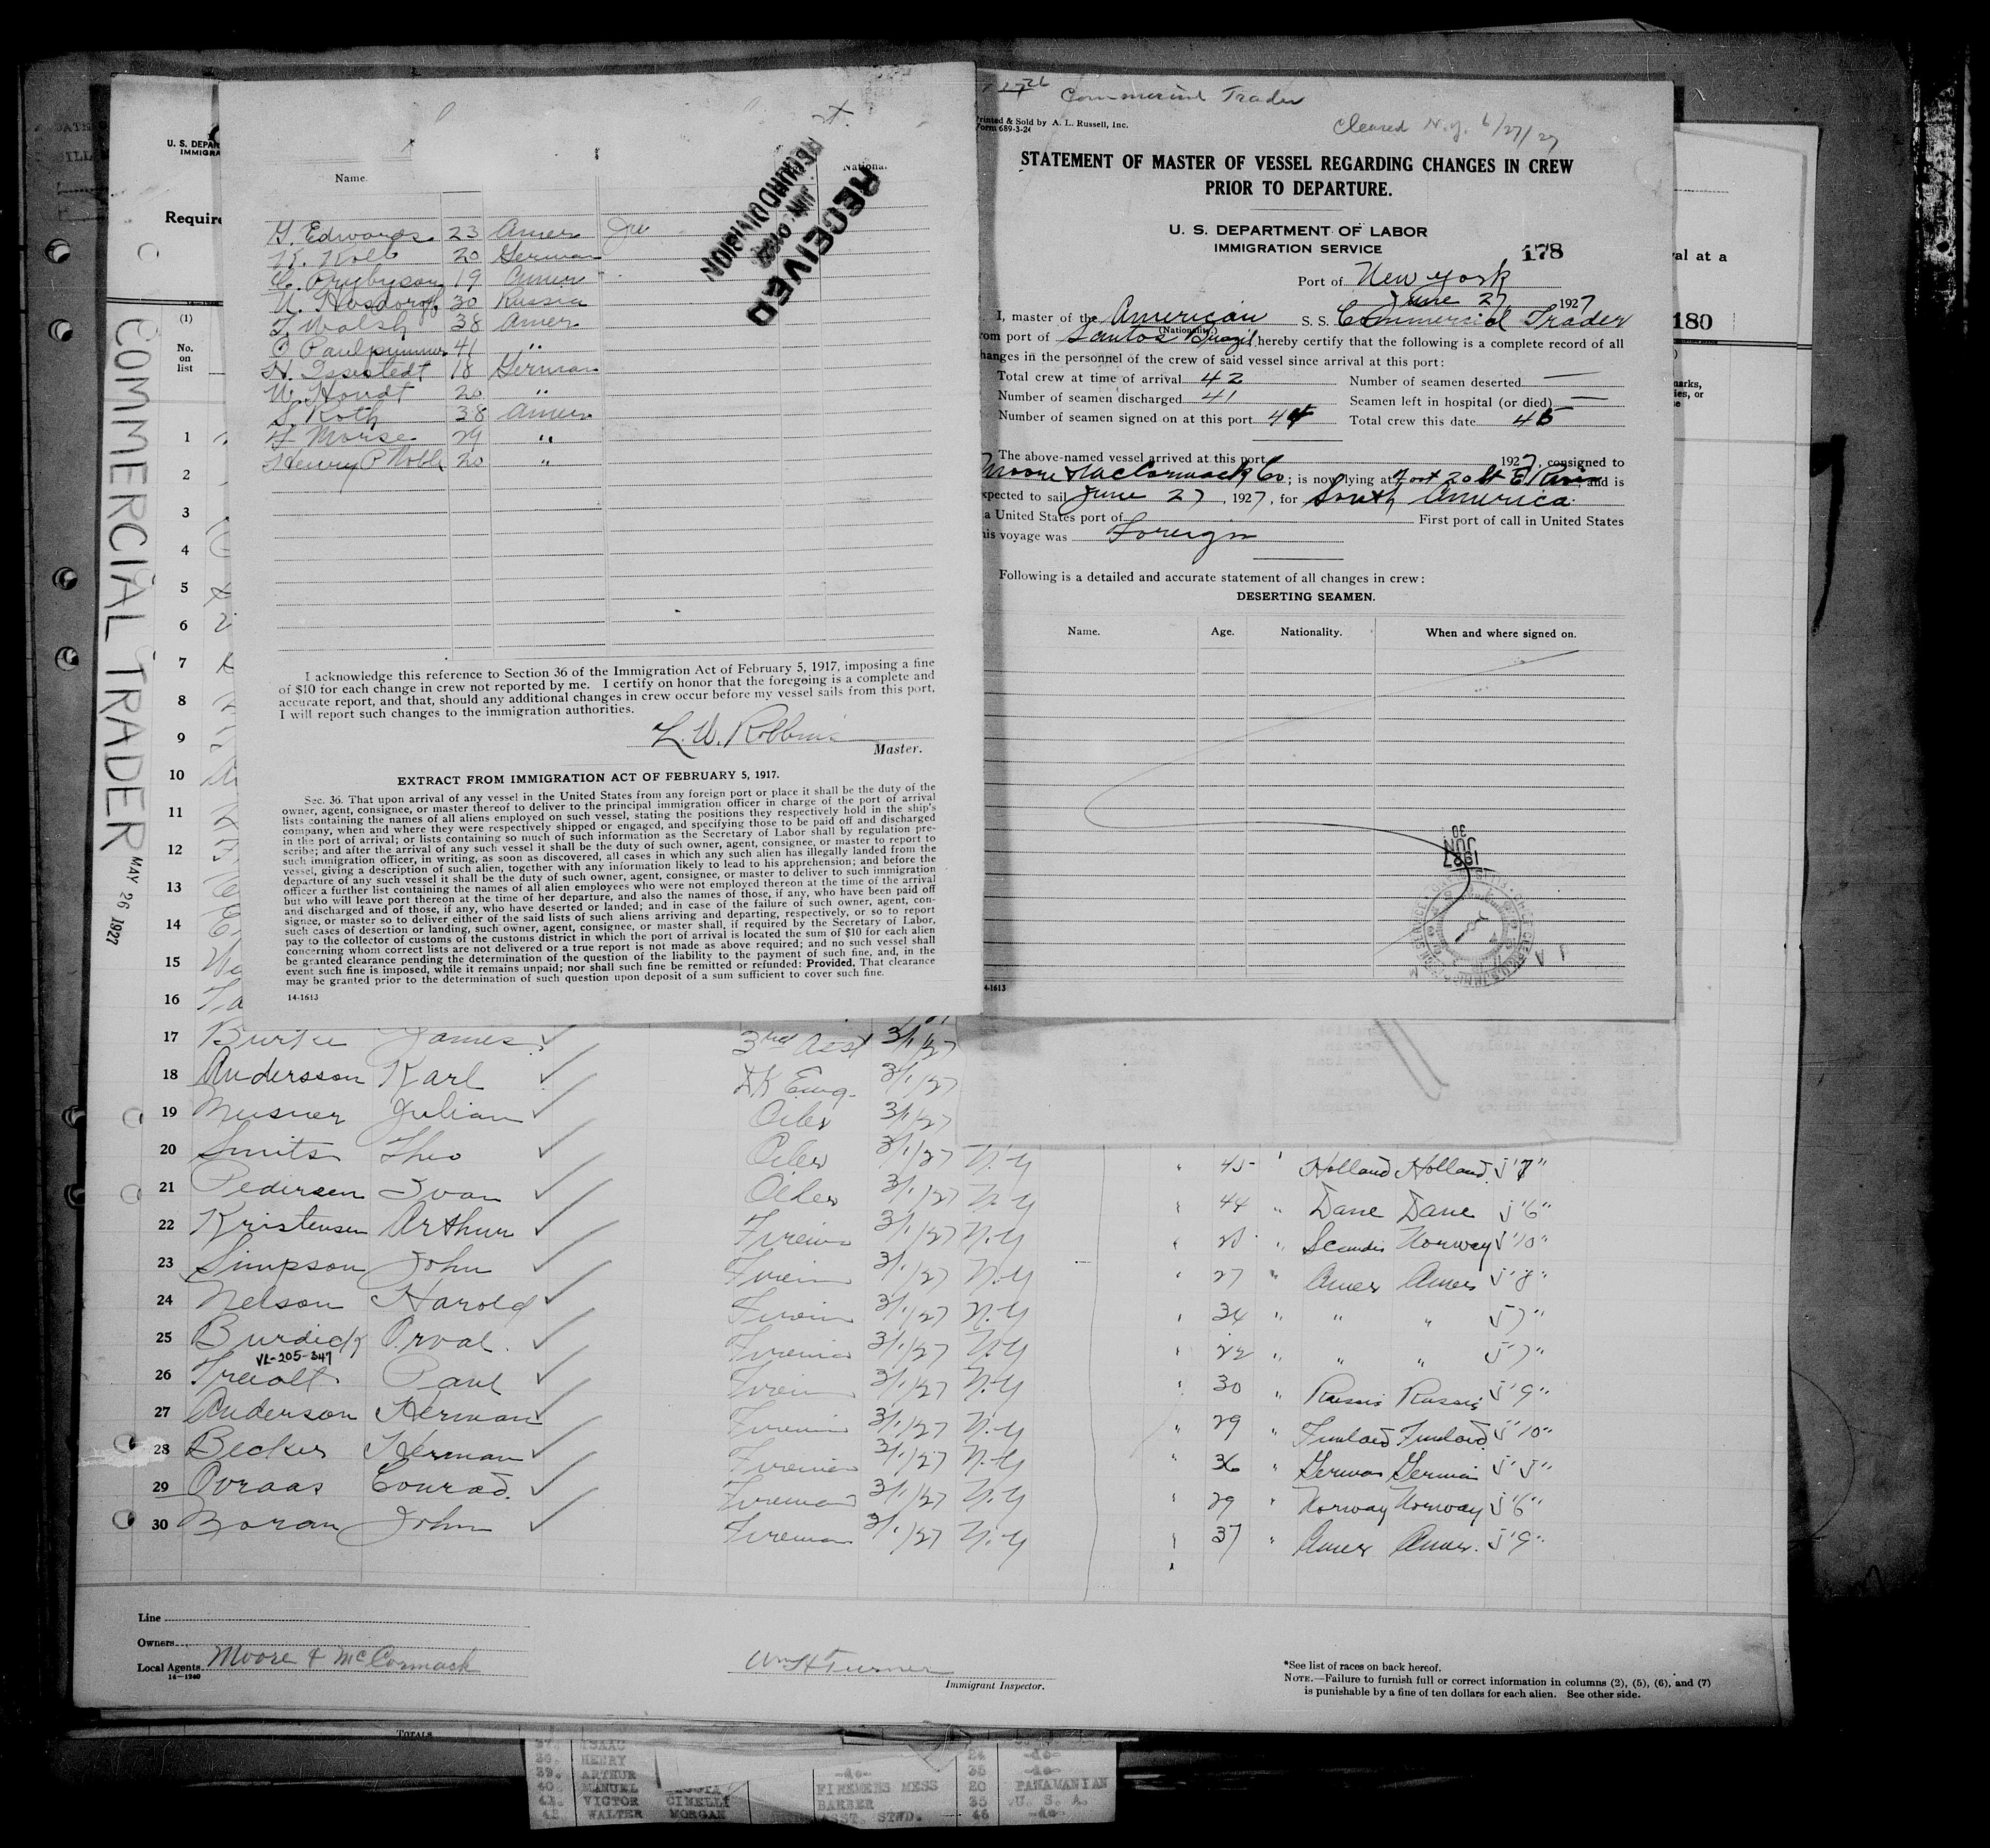 COMMERCIAL TRADER MAY 26 1927
U. S. DEPAR
IMMIGRA
Require
(1)
No.
on
list
Name.
National
RECEIVED
RECORD DIVISION
G. Edwards 23 Amer
K. Kolb 20 German
19 Amer
30 Russia
T. Walsh 38 Amer
41 "
18 German
20 "
S. Roth 38 Amer
F. Morse 29 "
Henry P Noble 20 "
I acknowledge this reference to Section 36 of the Immigration Act of February 5, 1917, imposing a fine
of $10 for each change in crew not reported by me. I certify on honor that the foregoing is a complete and
accurate report, and that, should any additional changes in crew occur before my vessel sails from this port,
I will report such changes to the immigration authorities.
L. W. Robbins
Master.
EXTRACT FROM IMMIGRATION ACT OF FEBRUARY 5, 1917.
Sec. 36. That upon arrival of any vessel in the United States from any foreign port or place it shall be the duty of the
owner, agent, consignee, or master thereof to deliver to the principal immigration officer in charge of the port of arrival
lists containing the names of all aliens employed on such vessel, stating the positions they respectively hold in the ship's
company, when and where they were respectively shipped or engaged, and specifying those to be paid off and discharged
in the port of arrival; or lists containing so much of such information as the Secretary of Labor shall by regulation pre-
scribe; and after the arrival of any such vessel it shall be the duty of such owner, agent, consignee, or master to report to
such immigration officer, in writing, as soon as discovered, all cases in which any such alien has illegally landed from the
vessel, giving a description of such alien, together with any information likely to lead to his apprehension; and before the
departure of any such vessel it shall be the duty of such owner, agent, consignee, or master to deliver to such immigration
officer a further list containing the names of all alien employees who were not employed thereon at the time of the arrival
but who will leave port thereon at the time of her departure, and also the names of those, if any, who have been paid off
and discharged and of those, if any, who have deserted or landed; and in case of the failure of such owner, agent, con-
signee, or master so to deliver either of the said lists of such aliens arriving and departing, respectively, or so to report
such cases of desertion or landing, such owner, agent, consignee, or master shall, if required by the Secretary of Labor,
pay to the collector of customs of the customs district in which the port of arrival is located the sum of $10 for each alien
concerning whom correct lists are not delivered or a true report is not made as above required; and no such vessel shall
be granted clearance pending the determination of the question of the liability to the payment of such fine, and, in the
event such fine is imposed, while it remains unpaid; nor shall such fine be remitted or refunded: Provided, That clearance
may be granted prior to the determination of such question upon deposit of a sum sufficient to cover such fine.
14-1613
Commercial Trader
Printed & Sold by A. L. Russell, Inc.
Form 689-3-24
Cleared N.Y. 6/27/27
STATEMENT OF MASTER OF VESSEL REGARDING CHANGES IN CREW
PRIOR TO DEPARTURE.
U. S. DEPARTMENT OF LABOR
IMMIGRATION SERVICE
178
Port of New York
June 27 1927
I, master of the American S. S. Commercial Trader
(Nationality.)
om port of Santos Brazil hereby certify that the following is a complete record of all
hanges in the personnel of the crew of said vessel since arrival at this port:
Total crew at time of arrival 42 Number of seamen deserted —
Number of seamen discharged 41 Seamen left in hospital (or died) —
Number of seamen signed on at this port 44 Total crew this date 45
The above-named vessel arrived at this port 1927, consigned to
Moore & McCormack Co; is now lying at Foot 20 St E River and is
xpected to sail June 27, 1927, for South America
a United States port of First port of call in United States
his voyage was Foreign
Following is a detailed and accurate statement of all changes in crew:
DESERTING SEAMEN.
Name. Age. Nationality. When and where signed on.
1927
JUN
30
4-1613
val at a
180
1
2
3
4
5
6
7
8
9
10
11
12
13
14
15
16
17 Burke James 3rd Asst 3/1/27
18 Andersson Karl DK Eng. 3/1/27
19 Meisner Julian Oiler 3/1/27
20 Smits Theo Oiler 3/1/27 N.Y 45 " Holland Holland 5'7"
21 Pedersen Ivan Oiler 3/1/27 N.Y 44 " Dane Dane 5'6"
22 Kristensen Arthur Firema 3/1/27 N.Y " Scandi Norway 5'10"
23 Simpson John Firem 3/1/27 N.Y 27 " Amer Amer 5'8"
24 Nelson Harold Firem 3/1/27 N.Y 34 " " " 5'7"
25 Burdick Orval Firema 3/1/27 N.Y 22 " " " 5'7"
VL-205-347
26 Paul Firem 3/1/27 N.Y 30 " Russia Russia 5'9"
27 Anderson Herman Firema 3/1/27 N.Y 29 " Finland Finland 5'10"
28 Becker Herman Fireman 3/1/27 N.Y 36 " German German 5'5"
29 Ovraas Conrad Fireman 3/1/27 N.Y 29 " Norway Norway 5'6"
30 Boran John Fireman 3/1/27 N.Y 37 " Amer Amer. 5'9"
Line
Owners
Local Agents Moore & McCormack
14-1240
Wm H Turner
Immigrant Inspector.
*See list of races on back hereof.
NOTE.—Failure to furnish full or correct information in columns (2), (5), (6), and (7)
is punishable by a fine of ten dollars for each alien. See other side.
TOTALS
37. ISAAC 24 -do-
38. HENRY
39. ARTHUR -do- 38 -do-
40. MANUEL FIREMENS MESS 20 PANAMANIAN
41. VICTOR CINELLI BARBER 35 U. S. A.
42. WALTER MORGAN ASST. STWD. 46 -do-